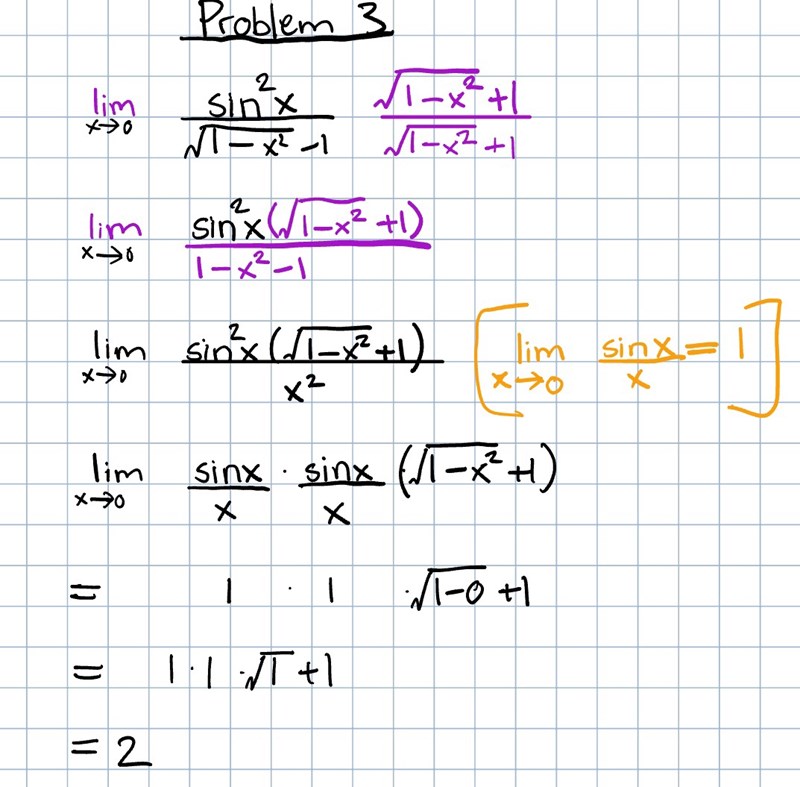 Problem 3
lim x→0 sin²x / (√(1-x²) -1) (√(1-x²) +1) / (√(1-x²) +1)
lim x→0 sin²x(√(1-x²) +1) / (1-x²-1)
lim x→0 sin²x(√(1-x²)+1) / x² [lim x→0 sinx / x = 1]
lim x→0 sinx / x · sinx / x (√(1-x²)+1)
= 1 · 1 ·√(1-0) +1
= 1·1 ·√1 +1
= 2